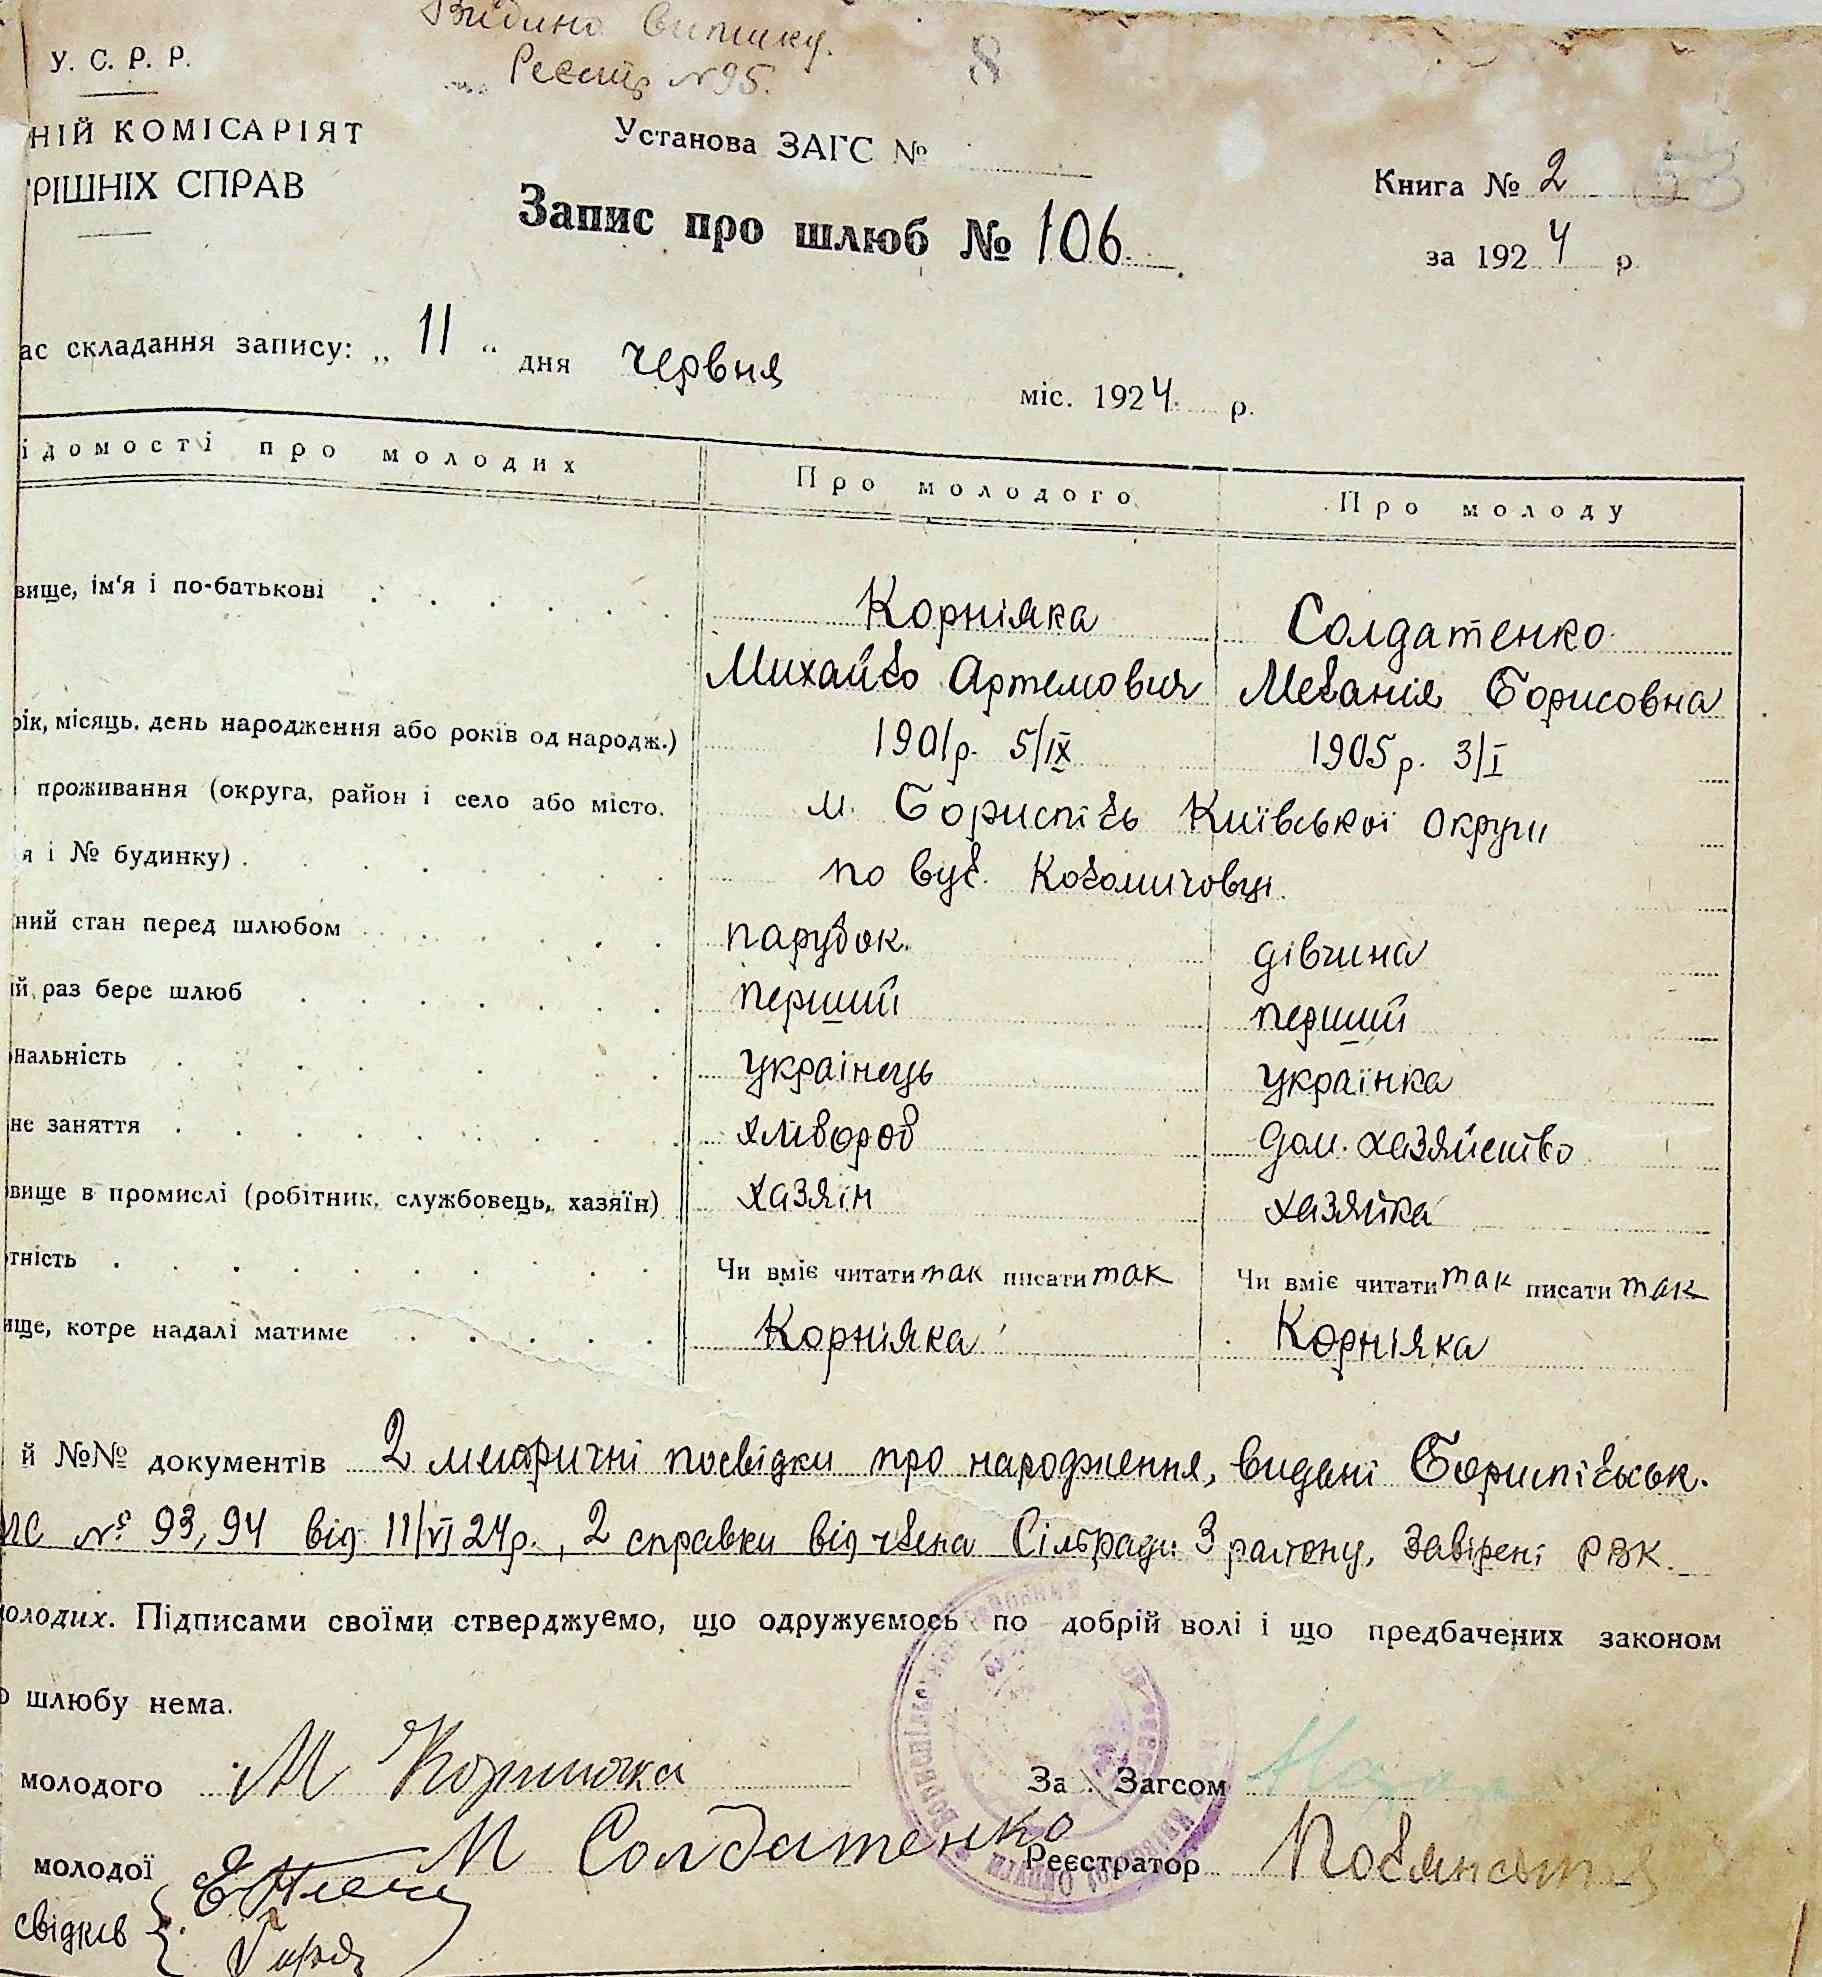 Видано виписку.
У. С. Р. Р.
Реєстр №95.
8
НІЙ КОМІСАРІЯТ
Установа ЗАГС №
РІШНІХ СПРАВ
Книга № 2
Запис про шлюб № 106.
за 1924 р.
ас складання запису: „ 11 “ дня червня міс. 1924 р.
ідомості про молодих Про молодого Про молоду
вище, ім'я і по-батькові Корніяка Солдатенко
Михайло Артемович Меланія Борисовна
рік, місяць, день народження або років од народж.) 1901р. 5/IX 1905р. 3/I
проживання (округа, район і село або місто, м. Бориспіль Київської Округи
я і № будинку) по вул. Коломичовці.
ний стан перед шлюбом парубок. дівчина
ій раз бере шлюб перший перший
нальність українець українка
не заняття хлібороб дом. хазяйство
вище в промислі (робітник, службовець, хазяїн) хазяїн хазяйка
тність Чи вміє читати так писати так Чи вміє читати так писати так
ище, котре надалі матиме Корніяка Корніяка
й №№ документів 2 метричні посвідки про народження, видані Бориспільськ.
№ 93, 94 від 11/VI 24р., 2 справки від члена Сільради 3 району, завірені РВК.
молодих. Підписами своїми стверджуємо, що одружуємось по добрій волі і що предбачених законом
о шлюбу нема.
молодого М Корнияка За Загсом
молодої М Солдатенко Реєстратор
свідків